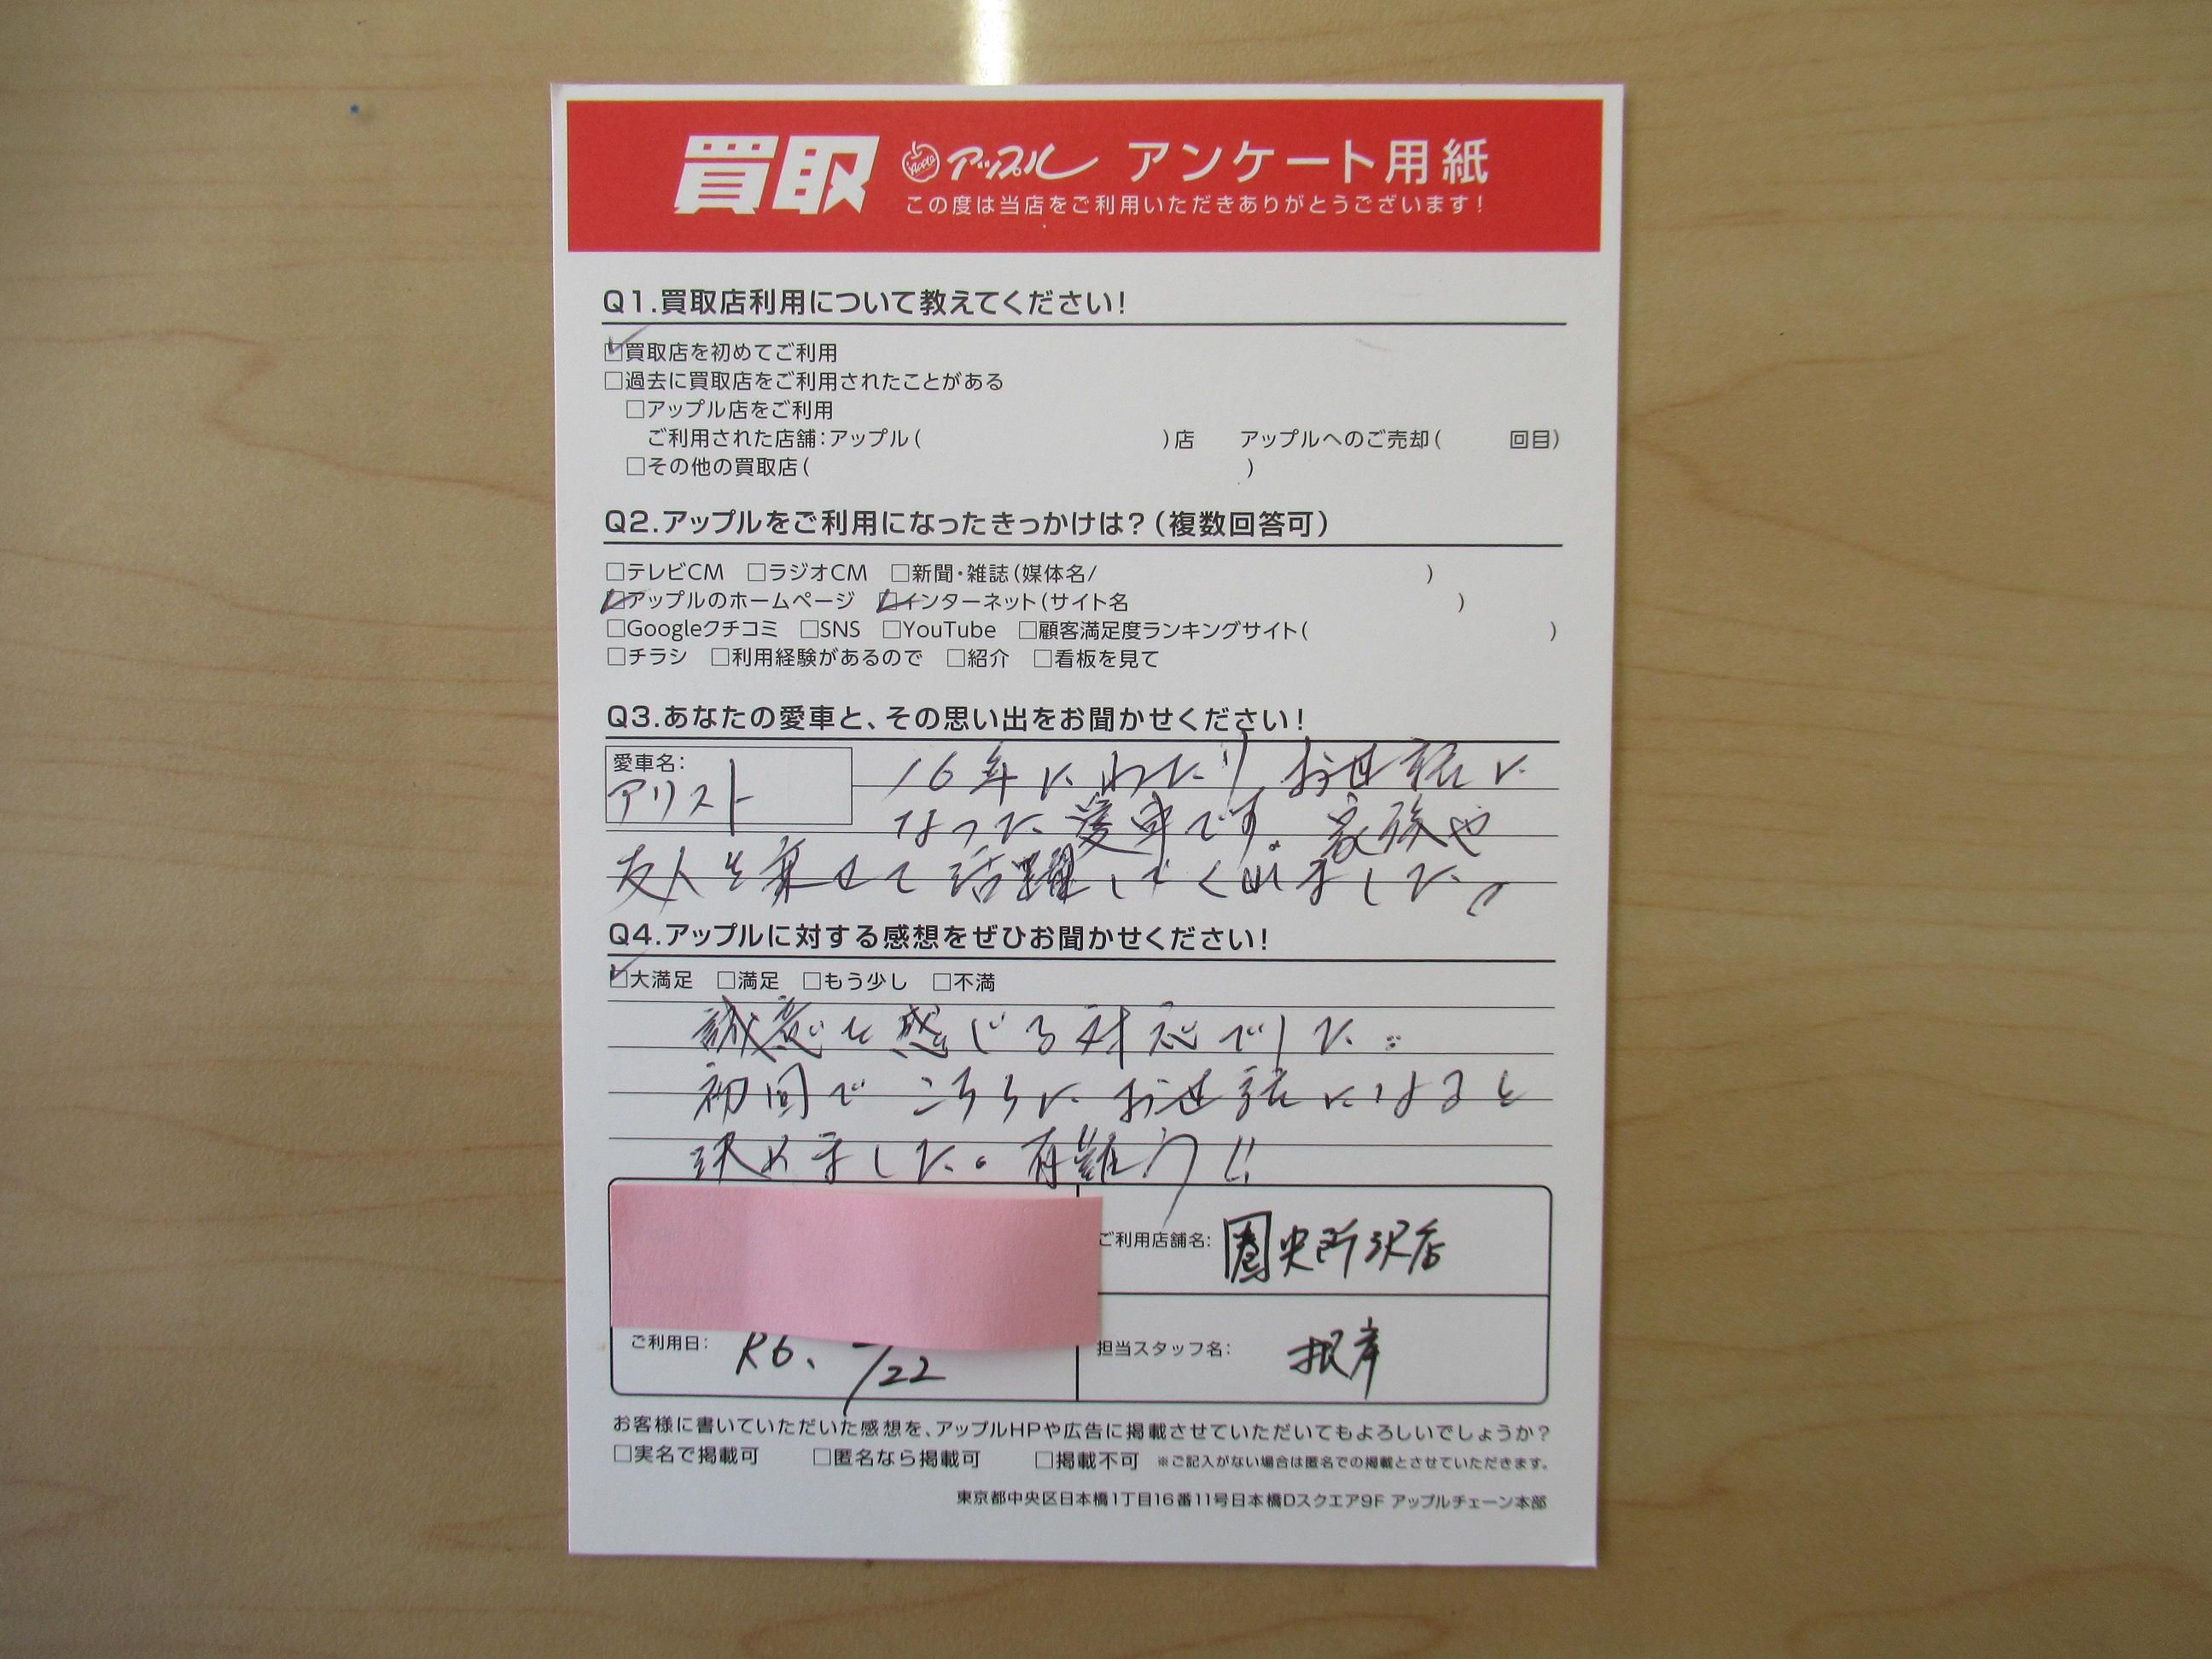 買取 Apple アップル アンケート用紙
この度は当店をご利用いただきありがとうございます!
Q1.買取店利用について教えてください!
☑買取店を初めてご利用
□過去に買取店をご利用されたことがある
□アップル店をご利用
ご利用された店舗:アップル( )店 アップルへのご売却( 回目)
□その他の買取店( )
Q2.アップルをご利用になったきっかけは?(複数回答可)
□テレビCM □ラジオCM □新聞・雑誌(媒体名/ )
☑アップルのホームページ ☑インターネット(サイト名 )
□Googleクチコミ □SNS □YouTube □顧客満足度ランキングサイト( )
□チラシ □利用経験があるので □紹介 □看板を見て
Q3.あなたの愛車と、その思い出をお聞かせください!
愛車名:
アリスト
16年にわたりお世話に
なった愛車です。家族や
友人を乗せて活躍してくれました。
Q4.アップルに対する感想をぜひお聞かせください!
☑大満足 □満足 □もう少し □不満
誠意を感じる対応でした。
初回でこちらにお世話になると
決めました。有難う!!
ご利用店舗名: 圏央所沢店
ご利用日: R6、 /22
担当スタッフ名: 根岸
お客様に書いていただいた感想を、アップルHPや広告に掲載させていただいてもよろしいでしょうか?
□実名で掲載可 □匿名なら掲載可 □掲載不可 ※ご記入がない場合は匿名での掲載とさせていただきます。
東京都中央区日本橋1丁目16番11号日本橋Dスクエア9F アップルチェーン本部